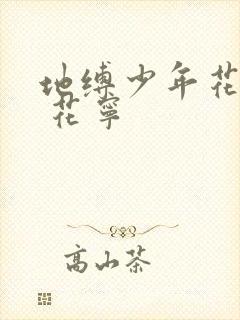 地缚少年花
花宁
高山茶